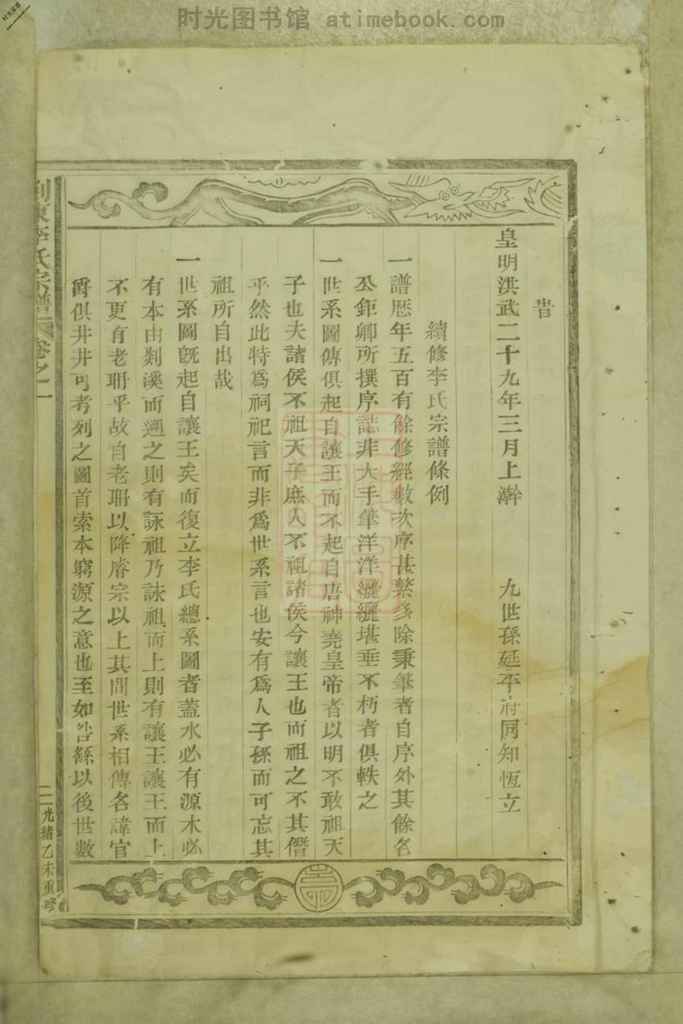 时光图书馆 atimebook.com
旹
皇明洪武二十九年三月上澣 九世孫延平府同知恆立
續修李氏宗譜條例
一譜歷年五百有餘修經數次序甚繁多除秉筆者自序外其餘名
公鉅卿所撰序誌非大手筆洋洋纚纚堪垂不朽者俱軼之
一世系圖傳俱起自讓王而不起自唐神堯皇帝者以明不敢祖天
子也夫諸侯不祖天子庶人不祖諸侯今讓王也而祖之不其僭
乎然此特為祠祀言而非為世系言也安有為人子孫而可忘其
祖所自出哉
一世系圖既起自讓王矣而復立李氏總系圖者蓋水必有源木必
有本由剡溪而遡之則有詠祖乃詠祖而上則有讓王讓王而上
不更有老聃乎故自老聃以降睿宗以上其間世系相傳各諱官
爵俱井井可考列之圖首索本窮源之意也至如咎繇以後世數
東李氏宗譜 卷之一
光緒乙未重修